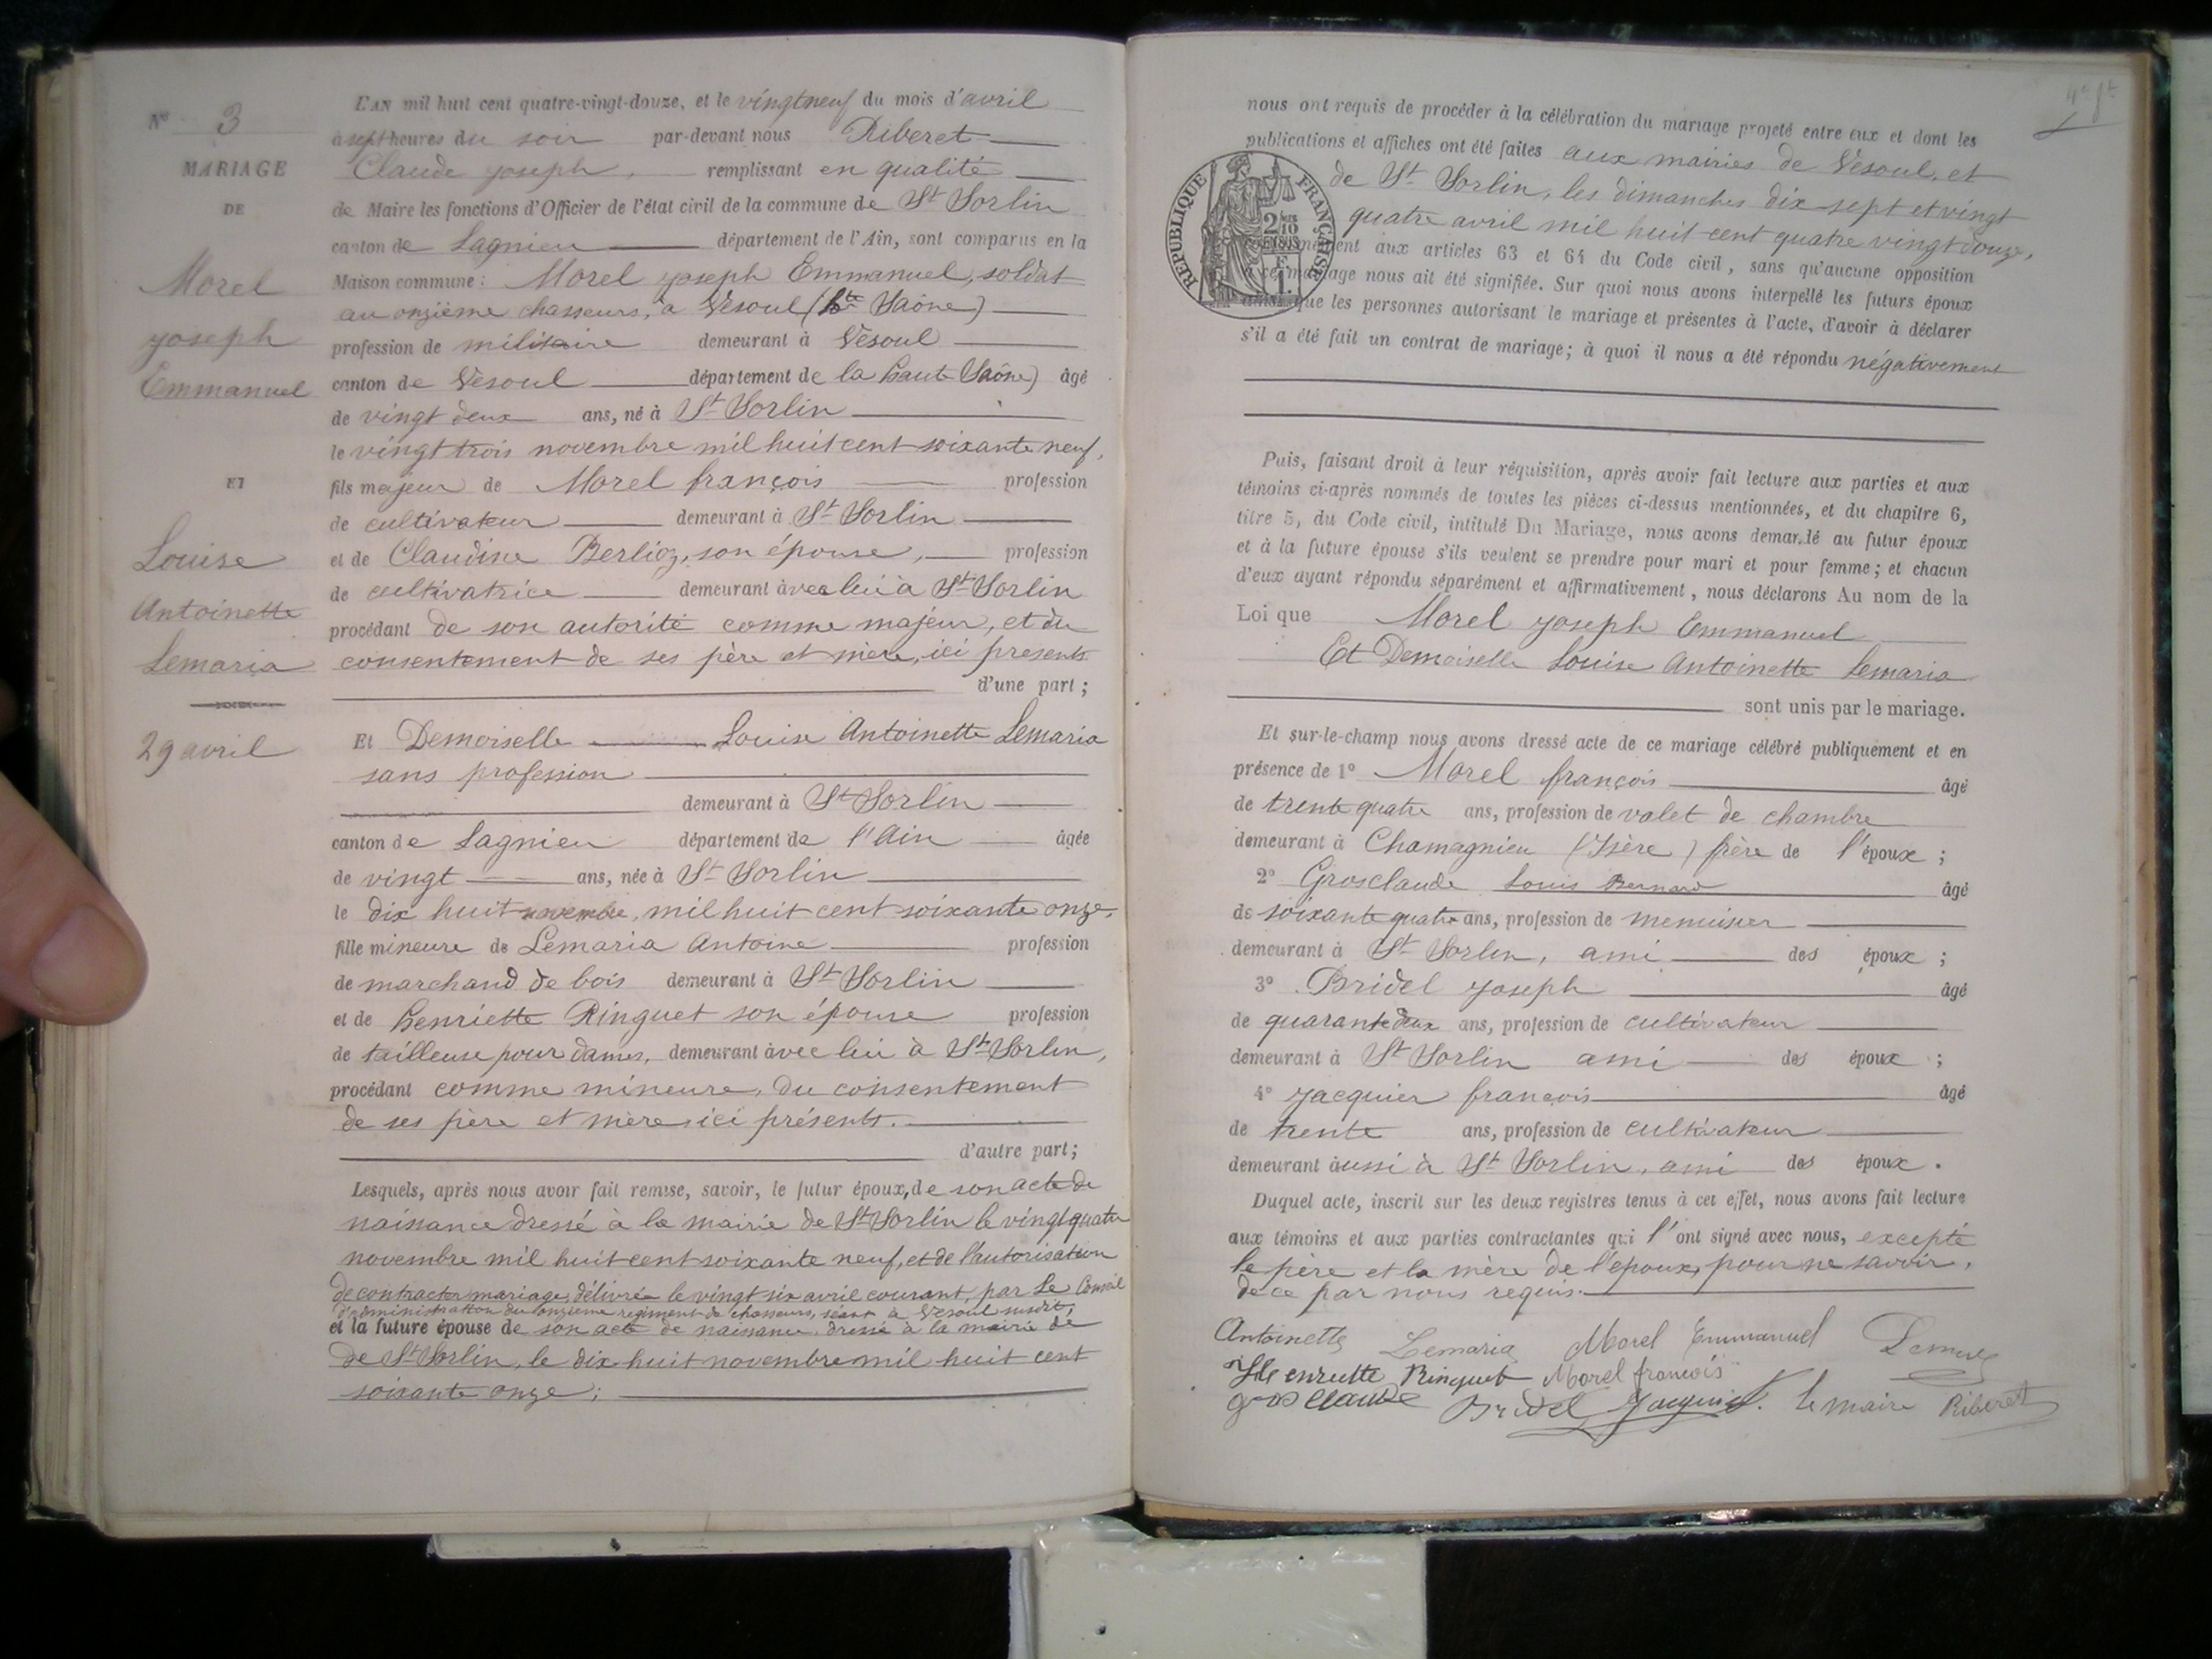 L'AN mil huit cent quatre-vingt-douze, et le vingt neuf du mois d'avril
N° 3
à sept heures du soir par-devant nous Riberet
MARIAGE
Claude joseph, remplissant en qualité
DE
de Maire les fonctions d'Officier de l'état civil de la commune de St Sorlin
canton de Lagnieu département de l'Ain, sont comparus en la
Morel
Maison commune : Morel joseph Emmanuel, soldat
au onzième chasseurs, à Vesoul (hte Saône)
joseph
profession de militaire demeurant à Vesoul
Emmanuel
canton de Vesoul département de la haute Saône) âgé
de vingt deux ans, né à St Sorlin
le vingt trois novembre mil huit cent soixante neuf,
ET
fils majeur de Morel françois profession
de cultivateur demeurant à St Sorlin
Louise
et de Claudine Berlioz, son épouse, profession
Antoinette
de cultivatrice demeurant avec lui à St Sorlin
procédant de son autorité comme majeur, et du
Lemaria
consentement de ses père et mère, ici présents
d'une part ;
29 avril
Et Demoiselle Louise Antoinette Lemaria
sans profession
demeurant à St Sorlin
canton de Lagnieu département de l'Ain âgée
de vingt ans, née à St Sorlin
le dix huit novembre, mil huit cent soixante onze,
fille mineure de Lemaria Antoine profession
de marchand de bois demeurant à St Sorlin
et de henriette Ringuet son épouse profession
de tailleuse pour dames, demeurant avec lui à St Sorlin,
procédant comme mineure, du consentement
de ses père et mère ici présents.
d'autre part ;
Lesquels, après nous avoir fait remise, savoir, le futur époux, de son acte de
naissance dressé à la mairie de St Sorlin le vingt quatre
novembre mil huit cent soixante neuf, et de l'autorisation
de contracter mariage, délivrée le vingt six avril courant, par le Conseil
d'administration du onzième régiment de chasseurs, séant à Vesoul susdit,
et la future épouse de son acte de naissance dressé à la mairie de
de St Sorlin, le dix huit novembre mil huit cent
soixante onze ;
nous ont requis de procéder à la célébration du mariage projeté entre eux et dont les
publications et affiches ont été faites aux mairies de Vesoul, et
de St Sorlin, les dimanches dix-sept et vingt
quatre avril mil huit cent quatre vingt douze,
RÉPUBLIQUE FRANÇAISE
aux articles 63 et 64 du Code civil, sans qu'aucune opposition
nous ait été signifiée. Sur quoi nous avons interpellé les futurs époux
que les personnes autorisant le mariage et présentes à l'acte, d'avoir à déclarer
s'il a été fait un contrat de mariage ; à quoi il nous a été répondu négativement
Puis, faisant droit à leur réquisition, après avoir fait lecture aux parties et aux
témoins ci-après nommés de toutes les pièces ci-dessus mentionnées, et du chapitre 6,
titre 5, du Code civil, intitulé Du Mariage, nous avons demandé au futur époux
et à la future épouse s'ils veulent se prendre pour mari et pour femme ; et chacun
d'eux ayant répondu séparément et affirmativement, nous déclarons Au nom de la
Loi que Morel joseph Emmanuel
Et Demoiselle Louise Antoinette Lemaria
sont unis par le mariage.
Et sur-le-champ nous avons dressé acte de ce mariage célébré publiquement et en
présence de 1° Morel françois âgé
de trente quatre ans, profession de valet de chambre
demeurant à Chamagnieu (Isère) frère de l'époux ;
2° Grosclaude Louis Bernard âgé
de soixante quatre ans, profession de menuisier
demeurant à St Sorlin, ami des époux ;
3° Bridel joseph âgé
de quarante deux ans, profession de cultivateur
demeurant à St Sorlin ami des époux ;
4° jacquier françois âgé
de trente ans, profession de cultivateur
demeurant aussi à St Sorlin, ami des époux.
Duquel acte, inscrit sur les deux registres tenus à cet effet, nous avons fait lecture
aux témoins et aux parties contractantes qui l'ont signé avec nous, excepté
le père et la mère de l'époux, pour ne savoir,
de ce par nous requis.
Antoinette Lemaria Morel Emmanuel
Ringuet Morel francois
gros claude Bridel Jacquier le maire Riberet